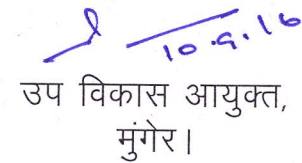 10.9.16
उप विकास आयुक्त,
मुंगेर।